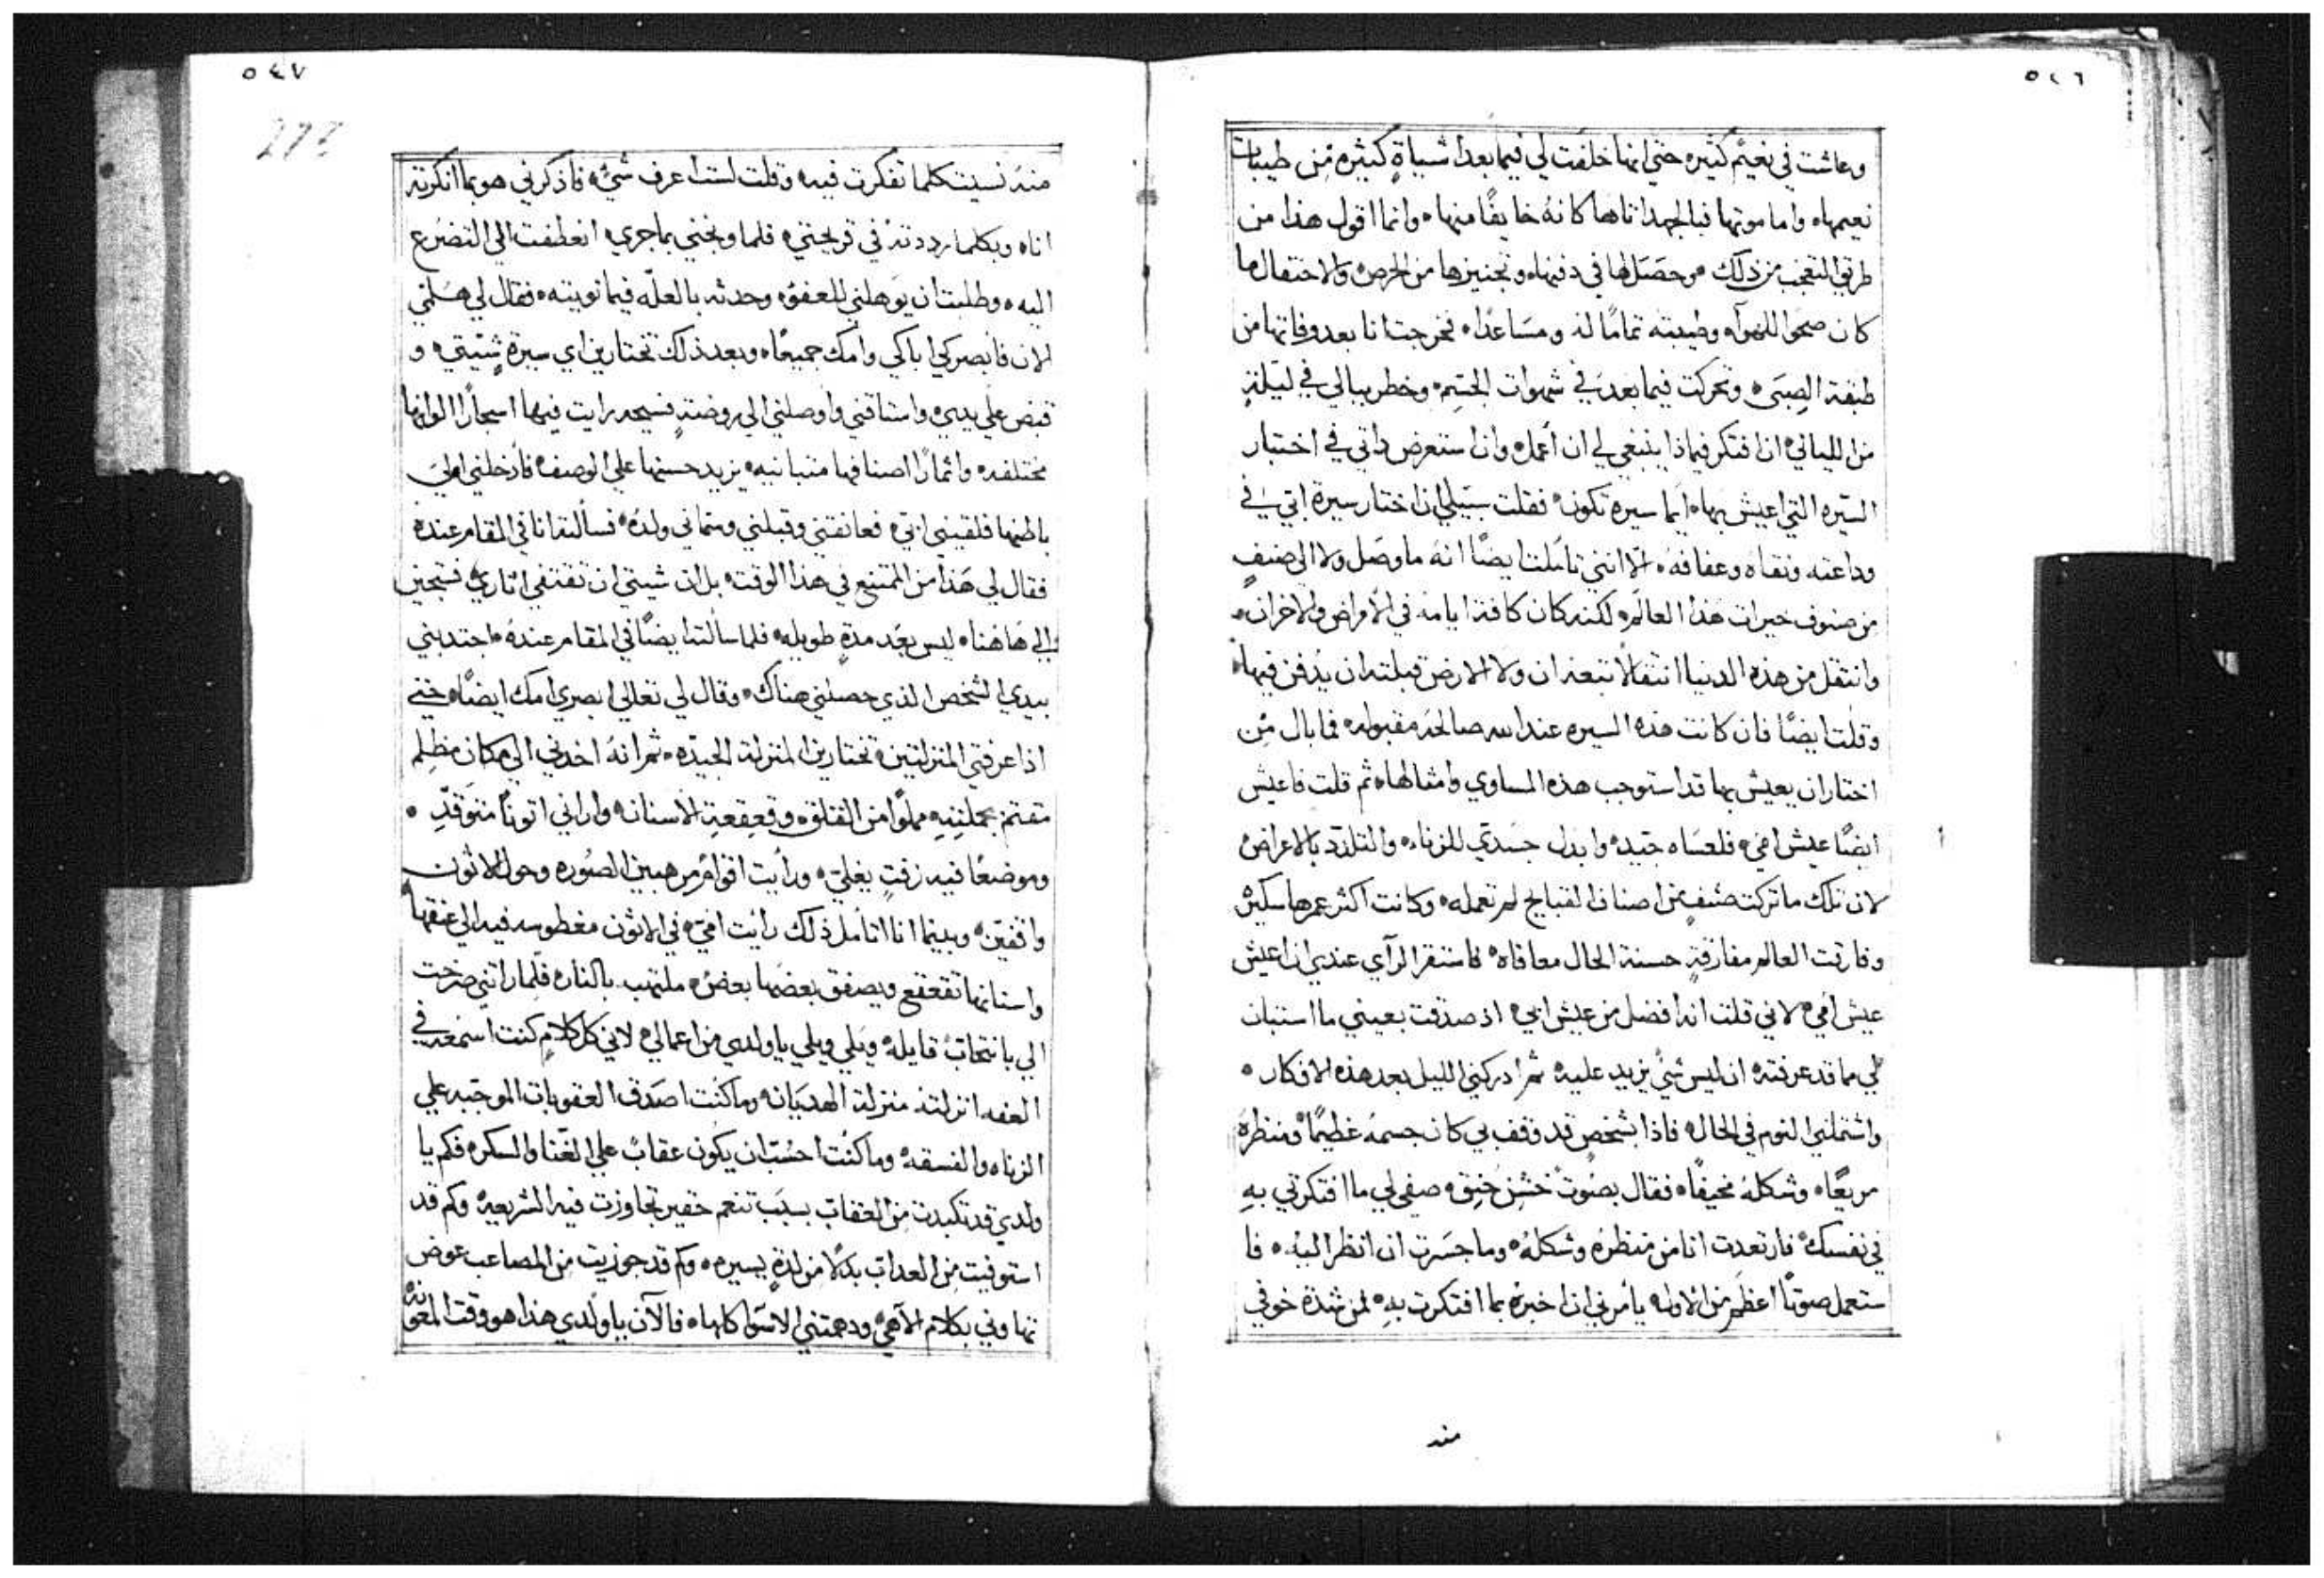 ٥٤٦
وعاشت في نعيم كثيره حتى انها خلفت لي فيما بعد اشياةٍ كثيره من طيبات
نعيمهاه واما موتها فبالجهد اتاها كانهُ خايفًا منهاه وانما اقول هذا من
طريق التعجب من ذلك وحصَل لها في دفنهاه وتجنيزها من الحرصْ والاحتفال ما
كان صحو الهوآه وطيبته تمامًا له ومسَاعدًاه فخرجت انا بعد وفاتها من
طبقة الصِبَى وتحركت فيما بعدَ في شهوات الجسِم وخطر ببالي في ليلةٍ
من الليالي ان افتكر فيماذا ينبغي لي ان اعمله وان استعرض داتي في اختبار
السيره التي اعيش بهاه ايما سيره تكون فقلت سَبيلي ان اختار سيرة ابي في
وداعته ونقاه وعفافهَ الا انني تاملت ايضًا انهُ ما وصَل ولا الى صَنفٍ
من صنوف خيرات هذا العالمَ لكنه كان كافة ايامهُ في الامراض والاحزان
وانتقل من هذه الدنيا انتقالًا تبعه ان ولا الارض قبلته ان يُدفن فيهاه
وقلت ايضًا فان كانت هذه السيره عند الله صالحه مقبوله فما بال من
اختار ان يعيش بها قد استوجب هذه المساوي وامثالهاه ثم قلت فاعيش
ايضًا عيش امي فلعسَاه جيده وابدل جسَدي للزناه والتلدد بالاعراضْ
لان تلك ما تركت صَنفٍ من اصناف القبايح لم تعمله وكانت اكثر عمرها سكيرْ
وفارقت العالم مفارقةٍ حسنة الحال معافاه فاستقر الرآي عندي ان اعيش
عيش امي لاني قلت انه افضل من عيش ابي اد صدقت بعيني ما استبان
لي مما قد عرفته ان ليس شي يزيد عليه ثم ادركني الليل بعد هذه الافكاره
واشتملني النوم في الحال فاذا بشخص قد وقف بي كان جسمهُ عظيمًا ومنظره
مريعًاه وشكلهُ مخيفًاه فقال بصَوت خشن خنِق صفي لي ما افتكرتي بهِ
في نفسك فارتعدت انا من منظره وشكلهُ وما جسَرت ان انظر اليهُ فا
ستعمل صوتًا اعظم من الاوله يامرني ان اخبرهُ بما افتكرت بهِ فمن شدة خوفي
منه
٥٤٧
منهُ نسيت كلما تفكرت فيه وقلت لست اعرف شيءْ فاذكرني هو بما انكرته
اناه وبكلما رددتهُ في قريحتي فلما وبخني بما جري انعطفت الى التضرع
اليه وطلبت ان يوَهلني للعفوْ وحدثه بالعلّه فيما نويته فقال لي هَلمي
الان فابصركي اباكي وامك جميعًاه وبعد ذلك تختارين اي سيرة شيتي و
قبض علي يدي واستاقني واوصلني الى روضتهٍ فسيحه رايت فيها اسجارًا الوانها
مختلفه واثمارًا اصنافها متباينه يزيد حسنها علي الوصف فادخلني الى
باطنها فلقيني ابي فعانقني وقبلني وسماني ولدهُ فسالته انا في المقام عنده
فقال لي هَذا من الممتنع في هذا الوقت بل ان شيتي ان تقتفي اثاري فستجين
الي هَاهناه ليس بعد مدةٍ طويله فلما سالته ايضًا في المقام عندهُ اجتدبني
بيدي الشخص الذي حصلني هناك وقال لي تعالي ابصري امك ايضًاه حتي
اذا عرفتي المنزلتين تختارين المنزلة الجيده ثم انهُ اخدني الي مكان مظلِم
مقتم بجملتِهِ مملوًا من القلق وقعقعةِ الاسنان واراني اتونًا متوَقدِ
وموضعًا فيه زفتٍ يغلي ورايت اقوام مرهبين الصُوره وحول الاثون
واقفين وبينما انا اتامل ذلك رايت امي في الاثون مغطوسه فيه الي عنقها
واسنانها تقعقع ويصفق بعضَها بعضْ ملتهب بالناره فلما راتني صَرخت
الي بانتحاب قايله ويَلي ويلي يا ولدي من اعمالي لاني كل كلامٍ كنت اسمعه في
العفه انزلته منزلة الهديَان وما كنت اصَدق العقوبات الموجبَه علي
الزناه والفسقه وما كنُت احسُب ان يكون عقابٌ علي الغنا والسكره فكم يا
ولدي قد تكبدت من العقاب بسبَب تنعم حقير تجاوزت فيه الشريعه وكم قد
استوفيت من العداب بدلًا من لدةٍ يسيره وكم قد جوزيت من المصاعب عوض
تهاوني بكلام الآهي ودهمتني الاسَوا كلهاه فالآن يا ولدي هذا هو وقت المعونهْ